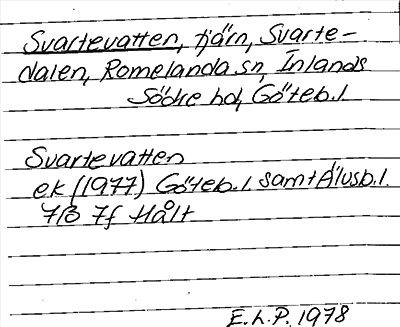 Svartevatten, tjärn, Svarte-
dalen, Romelanda sn, Inlands
Södre hd, Göteb. l.
Svartevatten
ek (1977) Göteb. l. samt Älvsb. l.
7B 7f Hålt
E.L.P. 1978